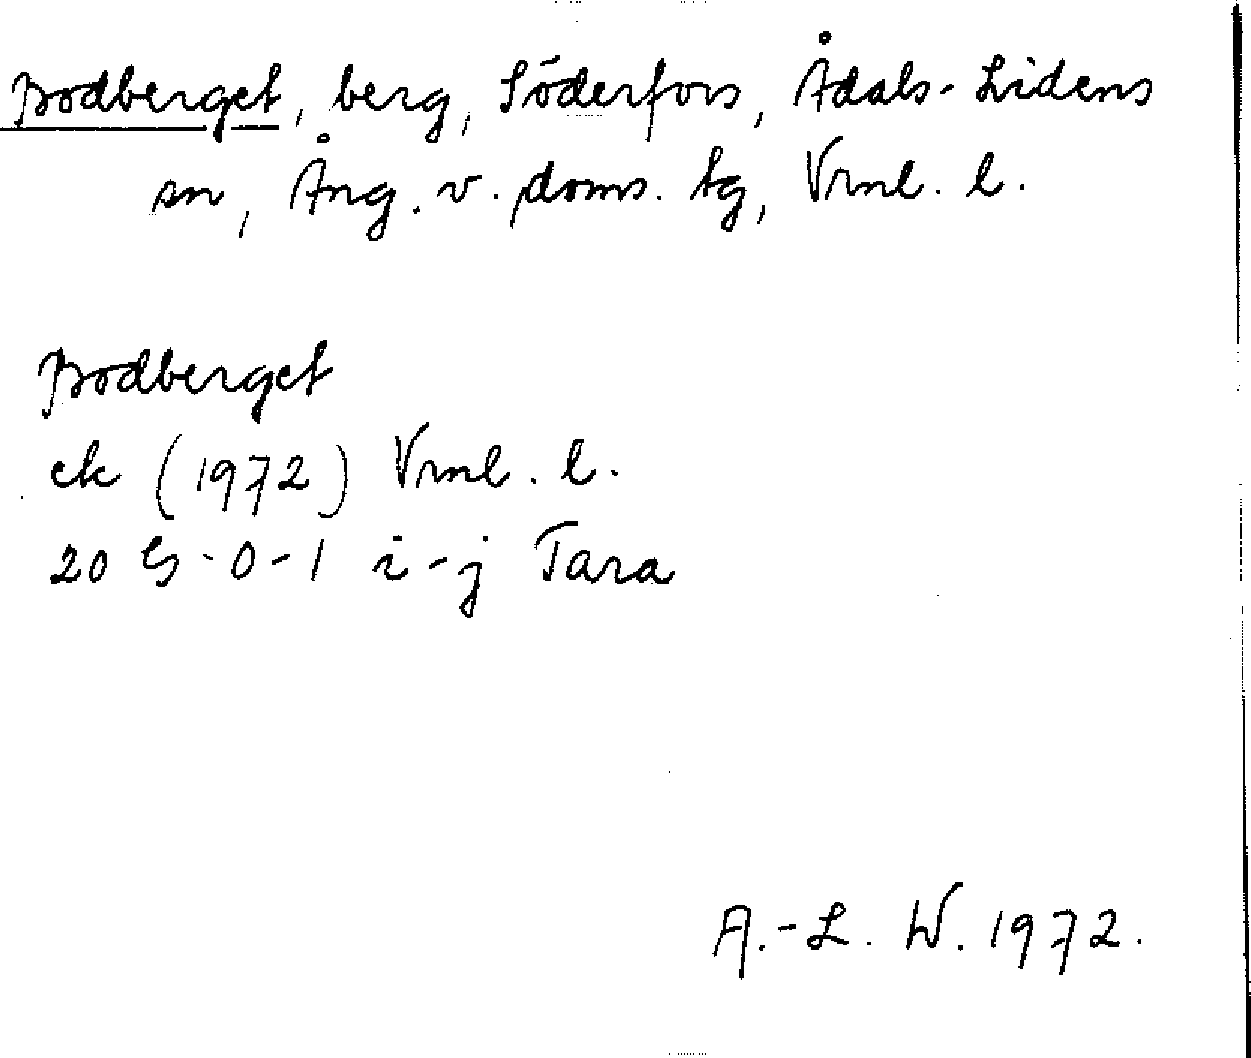 Bodberget, berg, Söderfors, Ådals-Lidens
sn, Ång. v. doms. tg, Vrml. l.
Bodberget
ek (1972) Vrml. l.
20 G-0-1 i-j Tara
A.-L. W. 1972.